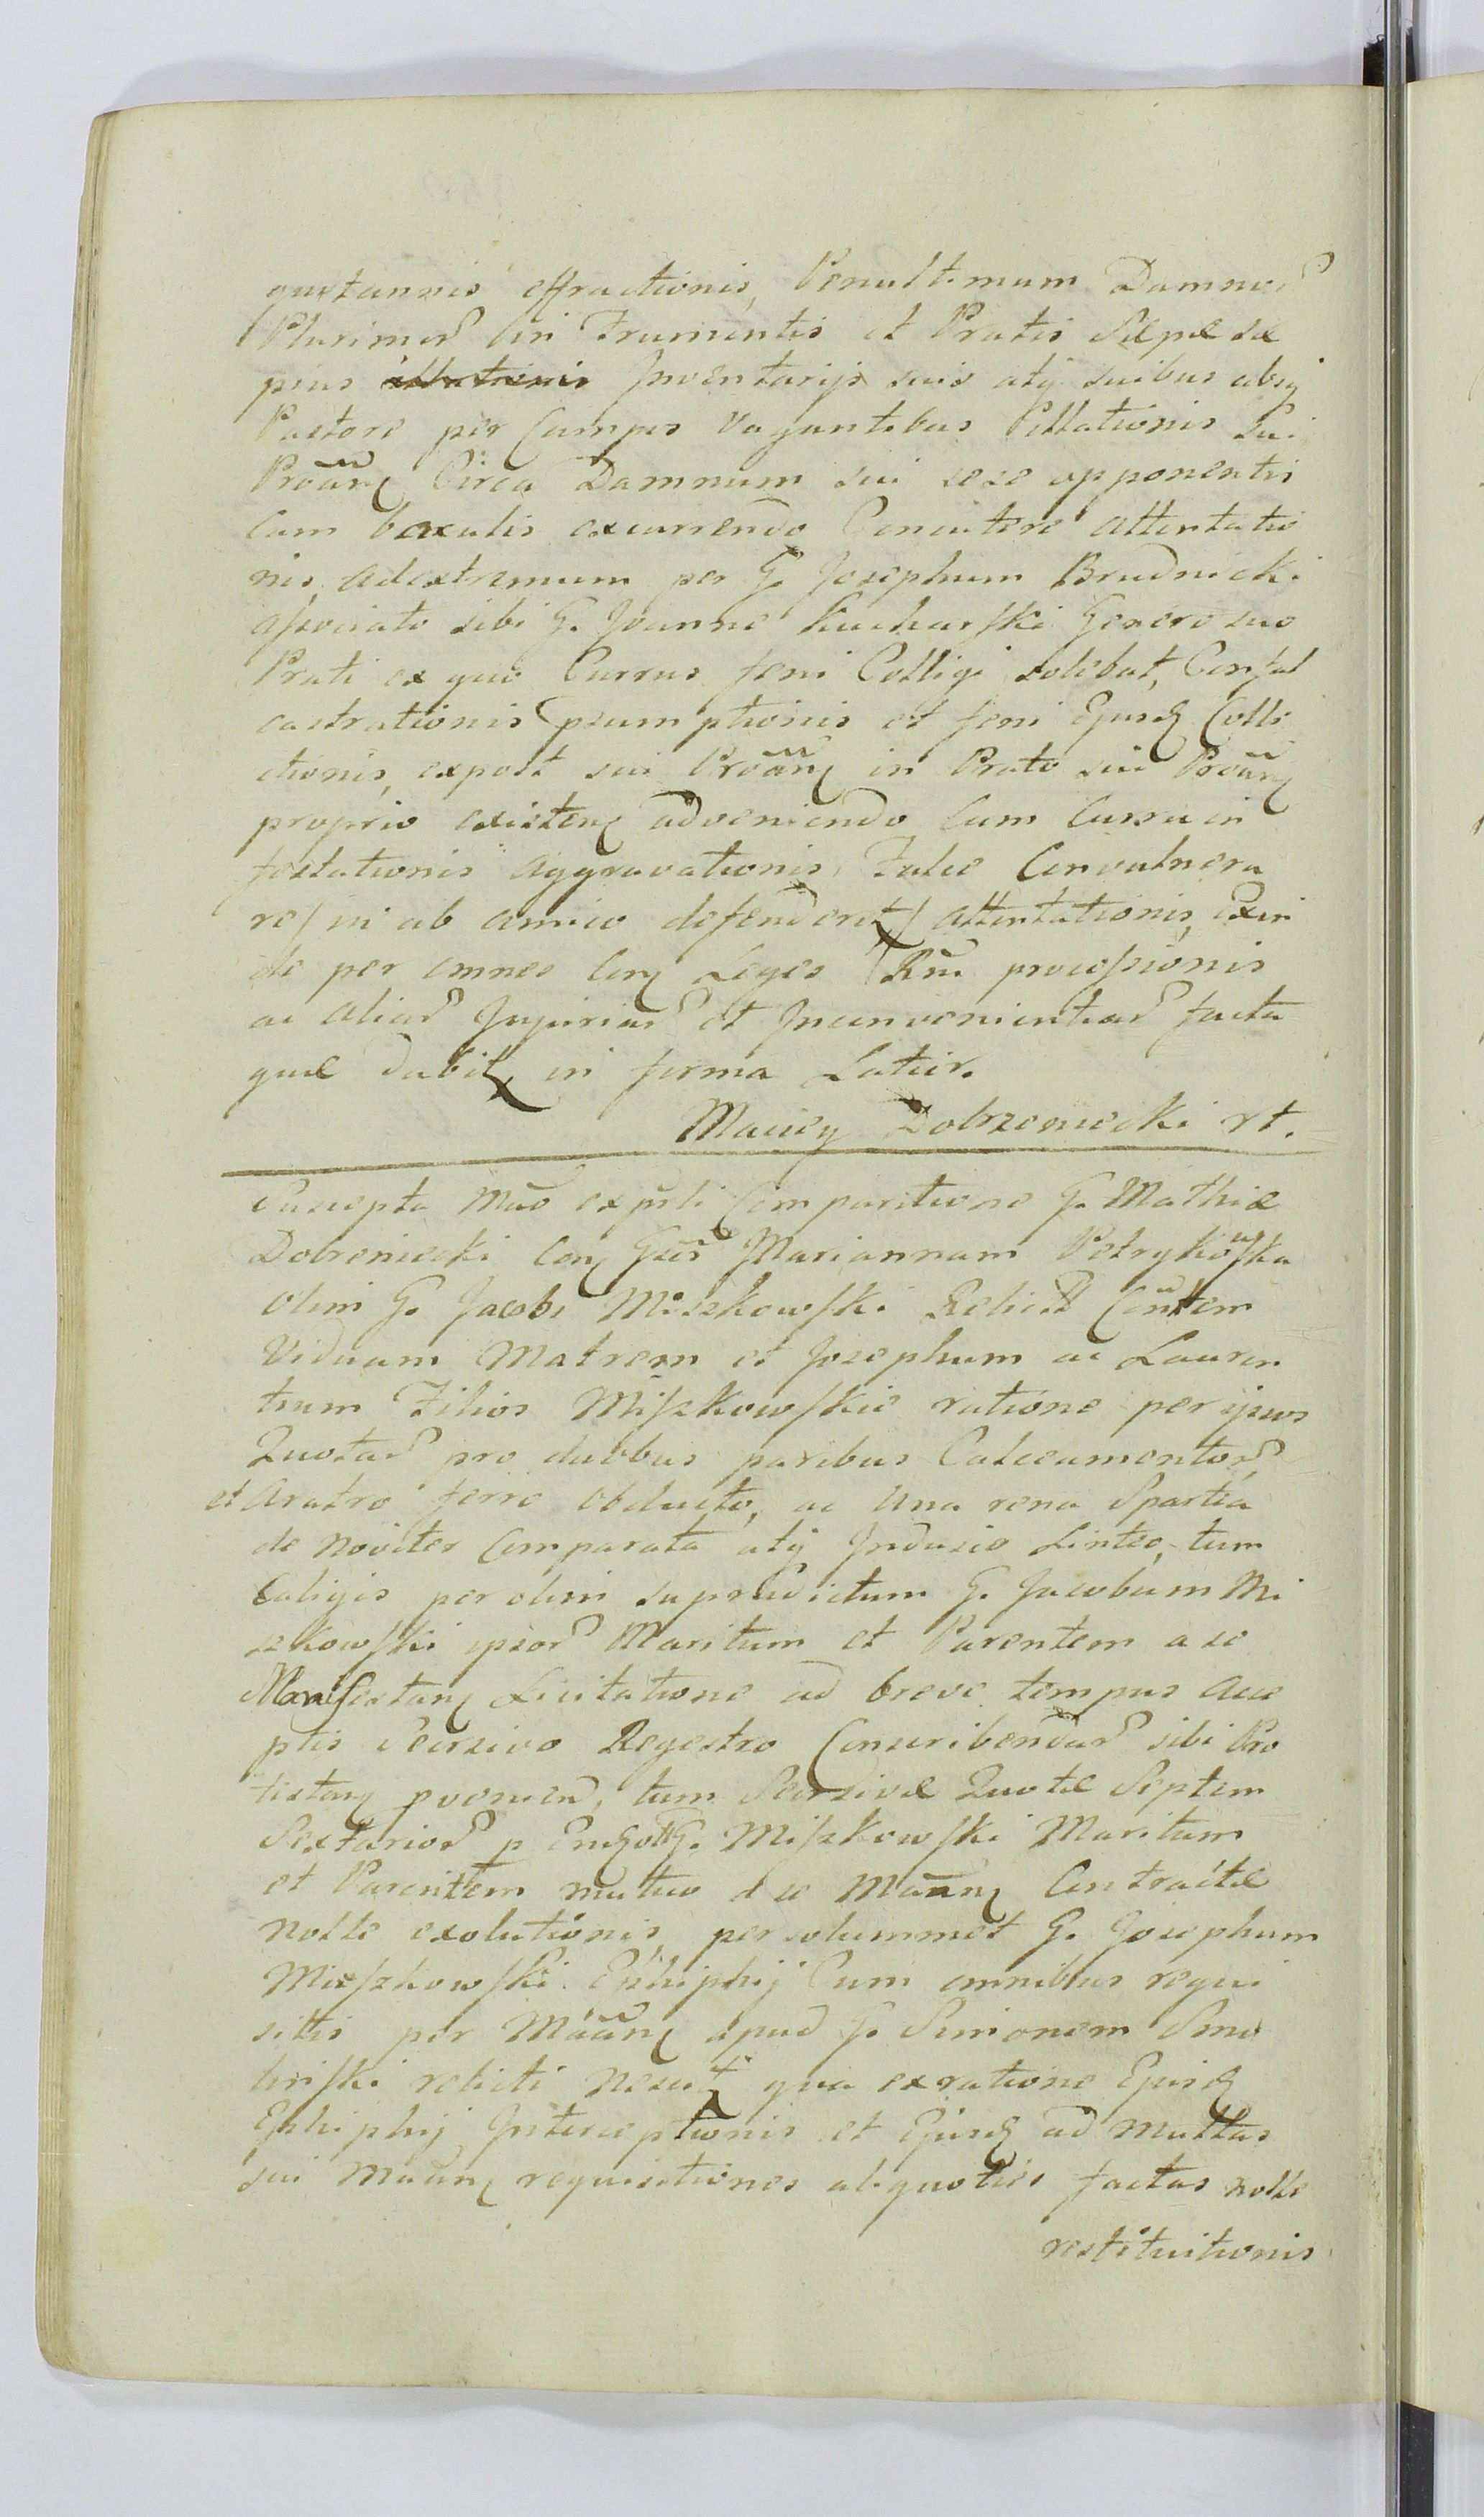 quotannis effractionis, Penultimum Damnor
Plurimor in Frumentis et Pratis Sæpe sæ
pius illationis Inventarijs suis atq suibus absq
Pastore per Campos Vagantibus Illationis Sui
Prõanq Circa Damnum sui sese opponentis
Cum baculis excurrendo Concutere attentatio
nis, adextremum per G. Josephum Brudnicki
associato sibi G. Joanne Kucharski Genero suo
Prati ex quo Currus feni Colligi solebat, Confal
castrationis psumptionis et feni Ejusd Colle
ctionis, expost sui Prõanq in Prato sui Prõanq
proprio existenq adveniendo Cum Curru in
festationis aggravationis, Falce Convulnera
re / ni ab amico defenderetr / attentationis, Exin
de per omnes Conq Leges Rni processionis
ac aliar Injuriar et Inconvenientiar facta
quæ dabitr in forma Latior.
Maciey Dobrzeniecki rt.
Suscepta Mão expsti Comparitione G. Mathiæ
Dobreniecki Conq Gsãs Mariannam Petrykowska
olim G. Jacobi Miszkowski Relictã Conttem
Viduam Matrem et Josephum ac Lauren
tium Filios Miszkowskie ratione per ipsos
Quotar pro duobus paribus Calceamentor
et Aratro ferro obducto, ac una rena Spartea
de noviter Comparata atq Indusio Linteo, tum
Caligis per olim supradictum G. Jacobum Mi
szkowski ipsor Maritum et Parentem a se
Manifestanq Licitatione ad breve tempus acce
ptis Seorsivo Regestro Conscribendar sibi Pro
testanq pvenien, tum Seorsivæ Quotæ Septem
Sextarior p Eund G. Miszkowski Maritum
et Parentem mutuo a se Mãanq Contractæ
nolle exolutionis, per solummet G. Josephum
Mieszkowski Ephiphij Cum omnibus requi
sitis per Mãanq apud G. Simonem Smo
linski relicti nescitr qua exratione Ejusd
Ephiphij Interceptionis et Ejusd ad multas
sui Mãanq requisitiones aliquoties factas nolle
restituitionis